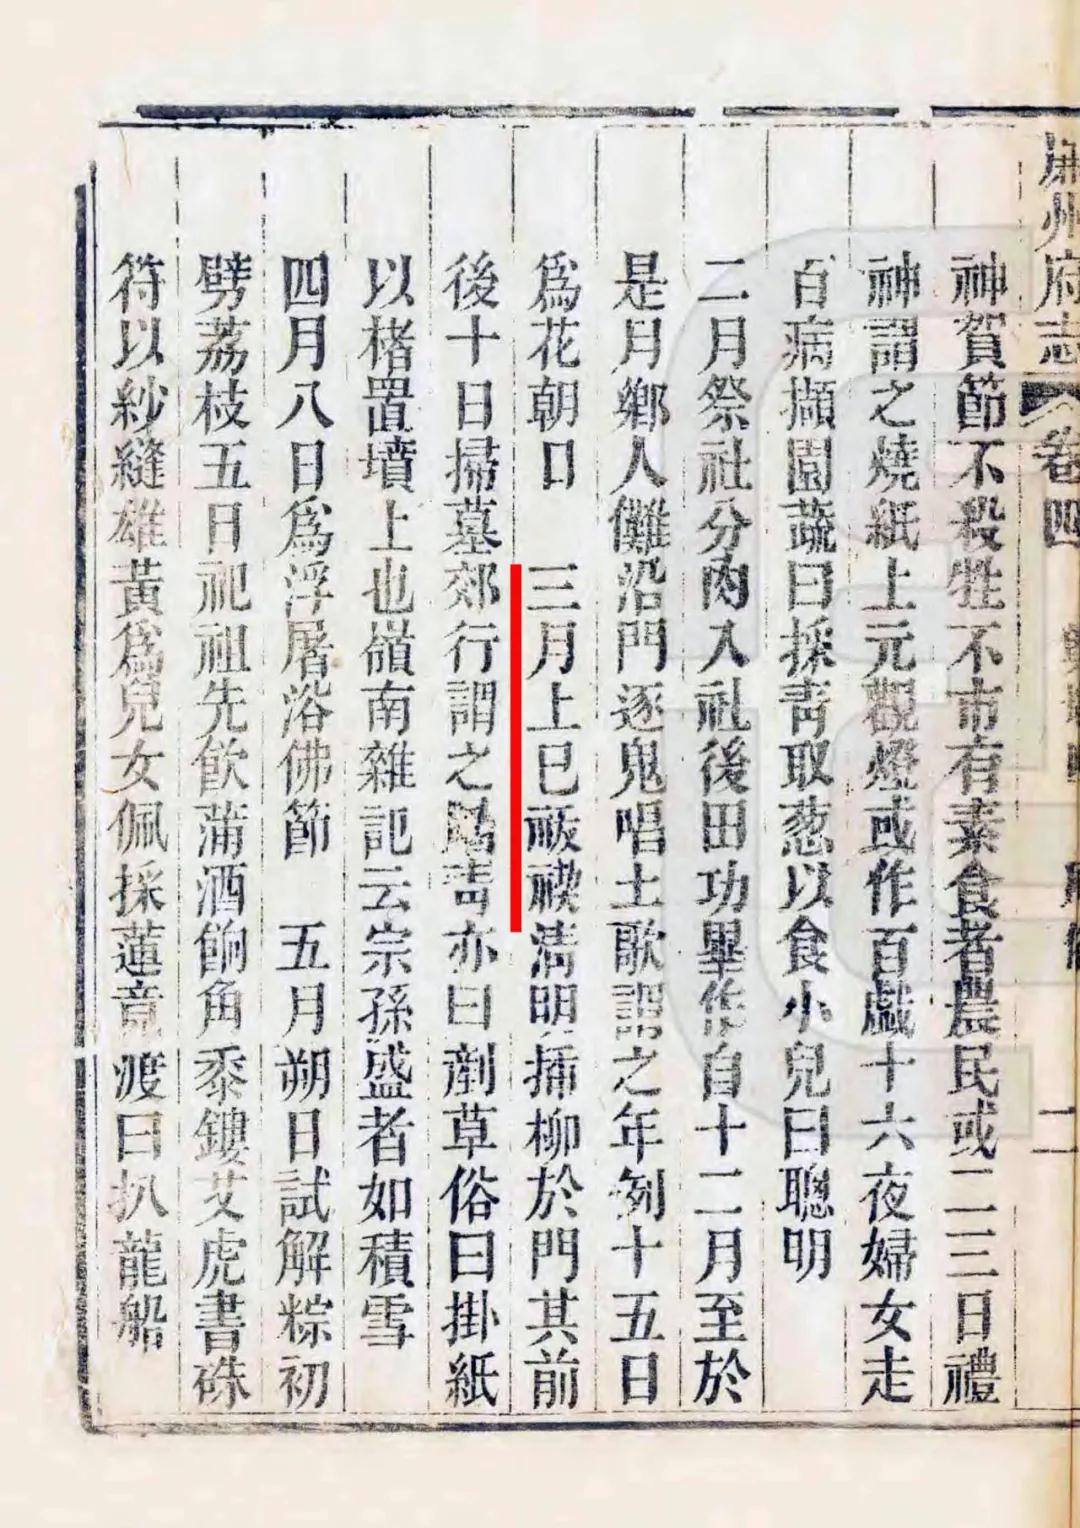 廉州府志 卷四 二
神賀節不殺牲不市有素食者農民或二三日禮
神謂之燒紙上元觀燈或作百戲十六夜婦女走
百病擷園蔬曰採青取葱以食小兒曰聰明
二月祭社分肉入社後田功畢作自十二月至於
是月鄉人儺沿門逐鬼唱土歌謂之年例十五日
爲花朝日 三月上巳祓禊清明插柳於門其前
後十日掃墓郊行謂之踏青亦曰剷草俗曰掛紙
以楮置墳上也嶺南雜記云宗孫盛者如積雪
四月八日爲浮屠浴佛節 五月朔日試解粽初
劈荔枝五日祀祖先飲蒲酒餉角黍鏤艾虎書硃
符以紗縫雄黃爲兒女佩採蓮竟渡曰扒龍船